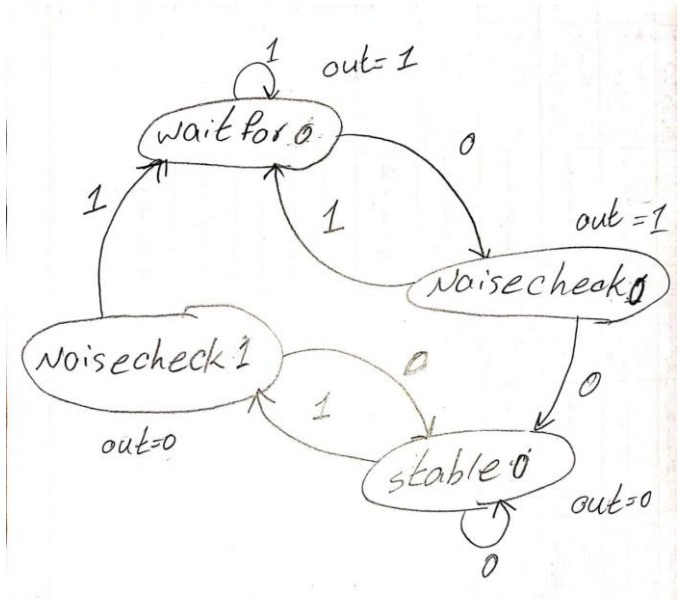 1
out=1
wait for 0
0
1
1
out=1
Noisecheck 0
Noisecheck 1
0
0
1
out=0
stable 0
out=0
0